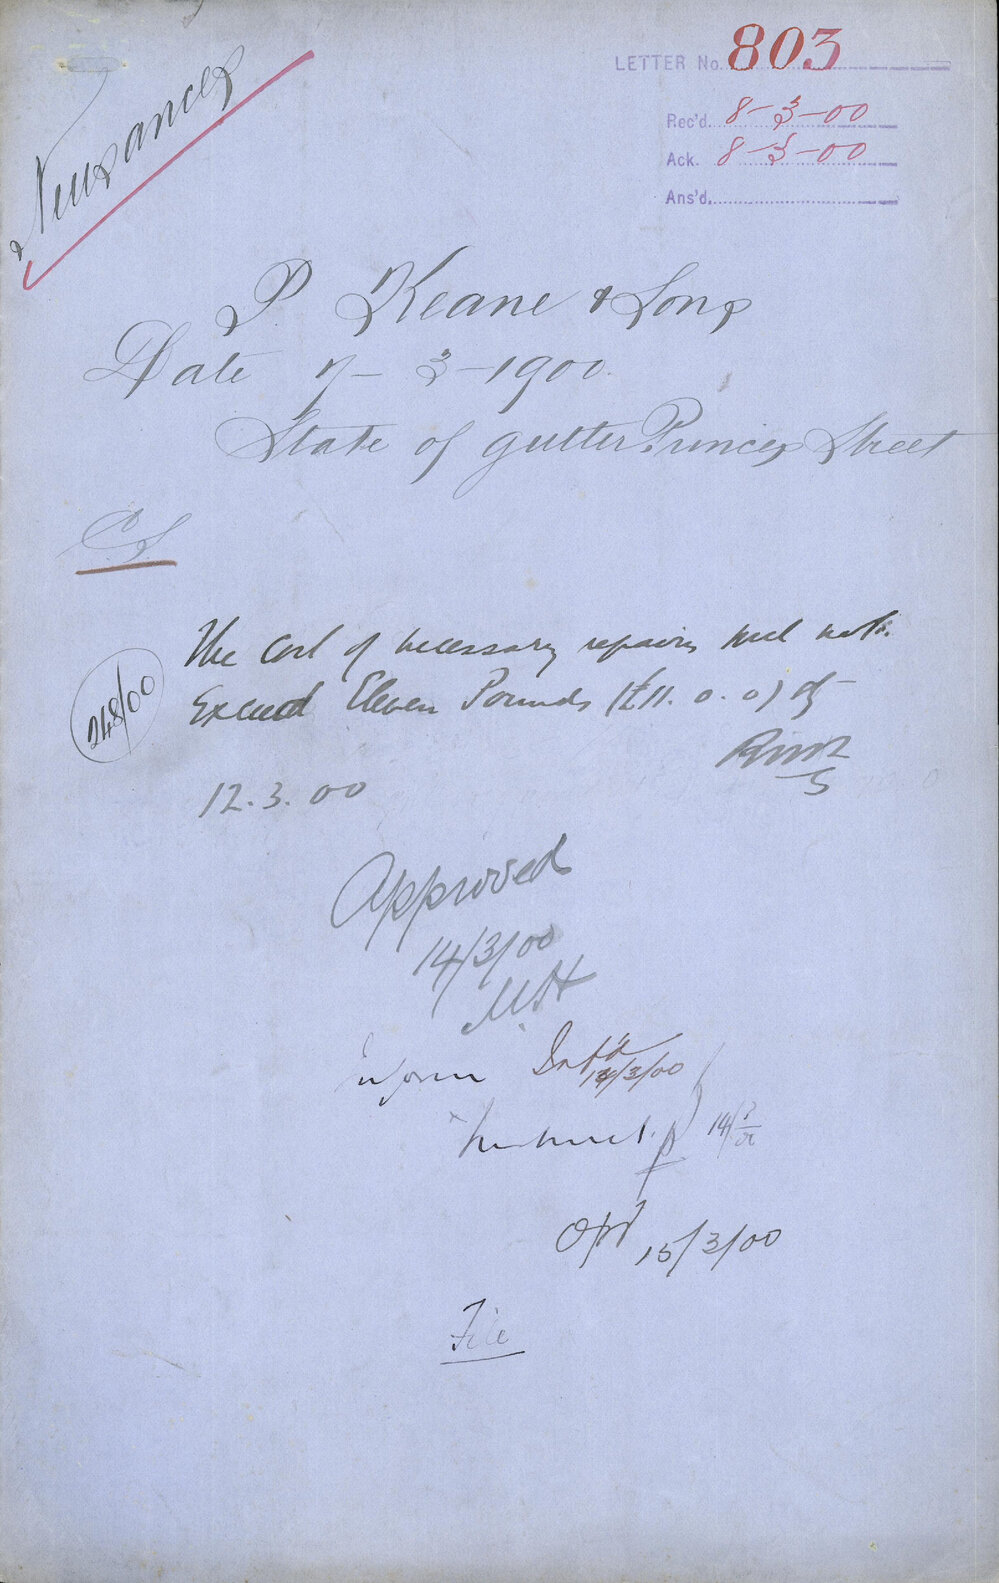 Nuisances
LETTER No. 803
Rec'd. 8-3-00
Ack. 8-3-00
Ans'd.
P Keane & Sons
Date 7-3-1900.
State of gutter Princes Street
CS
248/00
The cost of necessary repairs will not
exceed Eleven Pounds (£11. 0. 0)
12.3.00
Approved
14/3/00
Inform Inf'd 14/3/00
Instruct. 14/3/00
15/3/00
File